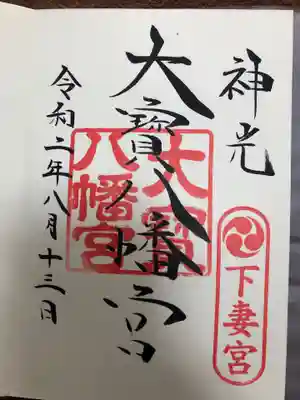 神光
大寳八幡宮
令和二年八月十三日
大寳
八幡宮
下妻宮